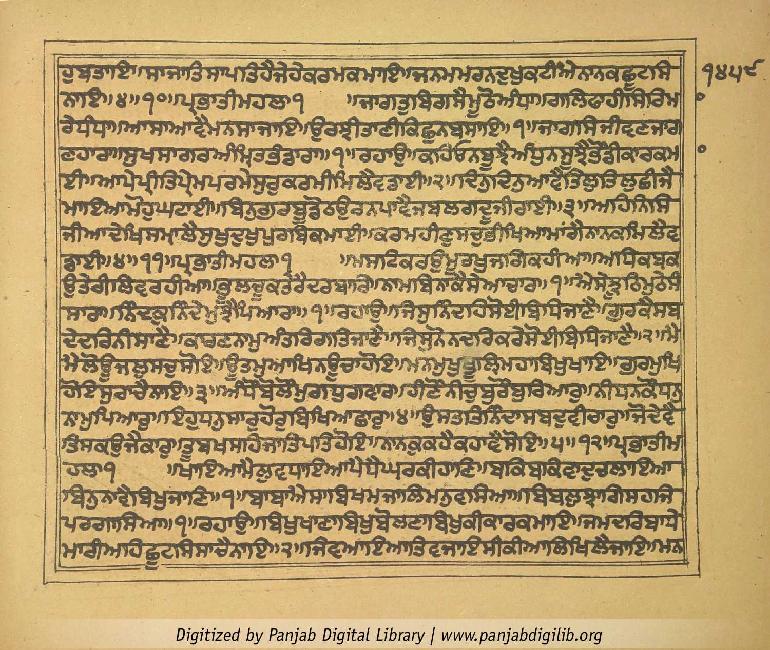 ਹੁਬਤਾਇ॥ਸਾਜਾਤਿਸਾਪਤਿਹੈਜੇਹੇਕਰਮਕਮਾਇ॥ਜਨਮਮਰਨਦੁਖੁਕਟੀਐਨਾਨਕਛੂਟਸਿ ੧੪੫੯
ਨਾਇ॥੪॥੧੦॥ਪ੍ਰਭਾਤੀਮਹਲਾ੧ ॥ਜਾਗਤੁਬਿਗਸੈਮੂਠੋਅੰਧਾ॥ਗਲਿਫਾਹੀਸਿਰਿਮਾ
ਰੇਧੰਧਾ॥ਆਸਾਆਵੈਮਨਸਾਜਾਇ॥ਉਰਝੀਤਾਣੀਕਿਛੁਨਬਸਾਇ॥੧॥ਜਾਗਸਿਜੀਵਣਜਾਗ
ਣਹਾਰਾ॥ਸੁਖਸਾਗਰਅੰਮ੍ਰਿਤਭੰਡਾਰਾ॥੧॥ਰਹਾਉ॥ਕਹਿਓਨਬੂਝੈਅੰਧੁਨਸੂਝੈਭੋਂਡੀਕਾਰਕਮਾ
ਈ॥ਆਪੇਪ੍ਰੀਤਿਪ੍ਰੇਮਪਰਮੇਸੁਰੁਕਰਮੀਮਿਲੈਵਡਾਈ॥੨॥ਦਿਨੁਦਿਨੁਆਵੈਤਿਲੁਤਿਲੁਛੀਜੈ
ਮਾਇਆਮੋਹੁਘਟਾਈ॥ਬਿਨੁਗੁਰਬੂਡੋਠਉਰਨਪਾਵੈਜਬਲਗਦੂਜੀਰਾਈ॥੩॥ਅਹਿਨਿਸਿ
ਜੀਆਦੇਖਿਸਮਾੑਲੈਸੁਖੁਦੁਖੁਪੁਰਬਿਕਮਾਈ॥ਕਰਮਹੀਣੁਸਚੁਭੀਖਿਆਮਾਂਗੈਨਾਨਕਮਿਲੈਵ
ਡਾਈ॥੪॥੧੧॥ਪ੍ਰਭਾਤੀਮਹਲਾ੧ ॥ਮਸਟਿਕਰਉਮੂਰਖੁਜਗਿਕਹੀਆ॥ਅਧਿਕਬਕ
ਉਤੇਰੀਲਿਵਰਹੀਆ॥ਭੂਲਚੂਕਤੇਰੈਦਰਬਾਰਿ॥ਨਾਮਬਿਨਾਕੈਸੇਆਚਾਰ॥੧॥ਐਸੇਝੂਠਿਮੁਠੇਸੰ
ਸਾਰਾ॥ਨਿੰਦਕੁਨਿੰਦੈਮੁਝੈਪਿਆਰਾ॥੧॥ਰਹਾਉ॥ਜਿਸੁਨਿੰਦਹਿਸੋਈਬਿਧਿਜਾਣੈ॥ਗੁਰਕੈਸਬ
ਦੇਦਰਿਨੀਸਾਣੈ॥ਕਾਰਣਨਾਮੁਅੰਤਰਿਗਤਿਜਾਣੈ॥ਜਿਸਨੋਨਦਰਿਕਰੇਸੋਈਬਿਧਿਜਾਣੈ॥੨॥ਮੈ
ਮੈਲੌਊਜਲੁਸਚੁਸੋਇ॥ਊਤਮੁਆਖਿਨਊਚਾਹੋਇ॥ਮਨਮੁਖੁਖੂਲਿੑਮਹਾਬਿਖੁਖਾਇ॥ਗੁਰਮੁਖਿ
ਹੋਇਸੁਰਾਚੈਨਾਇ॥੩॥ਅੰਧੌਬੋਲੌਮੁਗਧੁਗਵਾਰੁ॥ਹੀਣੌਨੀਚੁਬੁਰੌਬੁਰਿਆਰੁ॥ਨੀਧਨਕੌਧਨੁ
ਨਾਮੁਪਿਆਰੁ॥ਇਹੁਧਨੁਸਾਰੁਹੋਰੁਬਿਖਿਆਛਾਰੁ॥੪॥ਉਸਤਤਿਨਿੰਦਾਸਬਦੁਵੀਚਾਰੁ॥ਜੋਦੇਵੈ
ਤਿਸਕਉਜੈਕਾਰੁ॥ਤੂਬਖਸਹਿਜਾਤਿਪਤਿਹੋਇ॥ਨਾਨਕੁਕਹੈਕਹਾਵੈਸੋਇ॥੫॥੧੨॥ਪ੍ਰਭਾਤੀਮ
ਹਲਾ੧ ॥ਖਾਇਆਮੈਲੁਵਧਾਇਆਪੈਧੈਘਰਕੀਹਾਣਿ॥ਬਕਿਬਕਿਵਾਦੁਚਲਾਇਆ
ਬਿਨੁਨਾਵੈਬਿਖੁਜਾਣਿ॥੧॥ਬਾਬਾਐਸਾਬਿਖਮਜਾਲਿਮਨੁਵਾਸਿਆ॥ਬਿਬਲੁਝਾਗਿਸਹਜਿ
ਪਰਗਾਸਿਆ॥੧॥ਰਹਾਉ॥ਬਿਖੁਖਾਣਾਬਿਖੁਬੋਲਣਾਬਿਖੁਕੀਕਾਰਕਮਾਇ॥ਜਮਦਰਿਬਾਧੇ
ਮਾਰੀਅਹਿਛੂਟਸਿਸਾਚੈਨਾਇ॥੨॥ਜਿਵਆਇਆਤਿਵਜਾਇਸੀਕੀਆਲਿਖਿਲੈਜਾਇ॥ਮਨ
Digitized by Panjab Digital Library | www.panjabdigilib.org